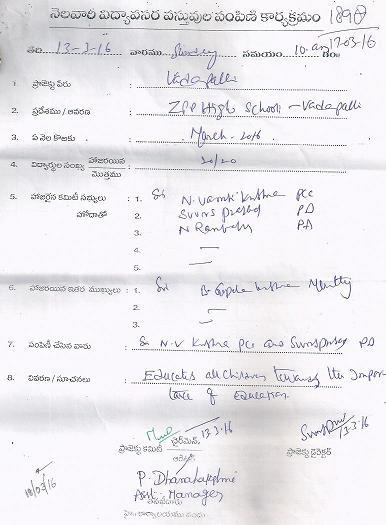 నెలవారి విద్యావసర వస్తువుల పంపిణి కార్యక్రమం
తేది 13-3-16 వారము Sunday సమయం 10-am గం
17-03-16
1. ప్రాజెక్టు పేరు Vadapalli
2. ప్రదేశము / ఆవరణ ZPP High School - Vadapalli
3. ఏ నెల కొరకు March-2016
4. విద్యార్థుల సంఖ్య హాజరయిన / మొత్తము 20/20
5. హాజరైన కమిటీ సభ్యులు : 1. Sri N. Vamsi Krishna PCC
హోదాతో 2. Suvvrs Prasad PD
3. N Rambabu PA
4. —
5. —
6. హాజరయిన ఇతర ముఖ్యులు : 1. Sri B Gopala Krishna Murthy
2. —
3. —
7. పంపిణీ చేసిన వారు Sri N.V Krishna PCC and PD
8. వివరణ / సూచనలు Educates all children towards the Impor
tance of Education
13.3.16
13-3-16
ప్రాజెక్టు కమిటీ ఛైర్మెన్,
ప్రాజెక్టు డైరెక్టర్
P. Dhanalakshmi
Asst. Manager
18/03/16